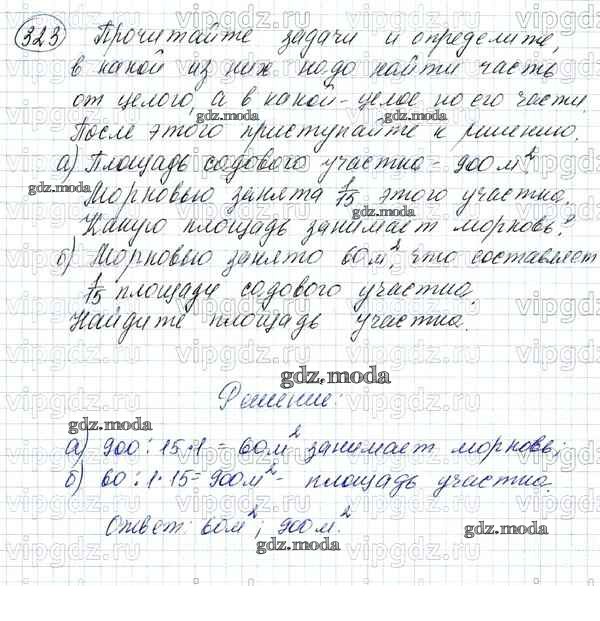 323 Прочитайте задачи и определите,
в какой из них надо найти часть
от целого, а в какой - целое по его части.
После этого приступайте к решению.
а) Площадь садового участка - 900м².
Морковью занята 1/15 этого участка.
Какую площадь занимает морковь?
б) Морковью занято 60м², что составляет
1/15 площади садового участка.
Найдите площадь участка.
Решение:
а) 900:15·1=60м² занимает морковь;
б) 60:1·15=900м² - площадь участка.
Ответ: 60м²; 900м².
gdz.moda
vipgdz.ru